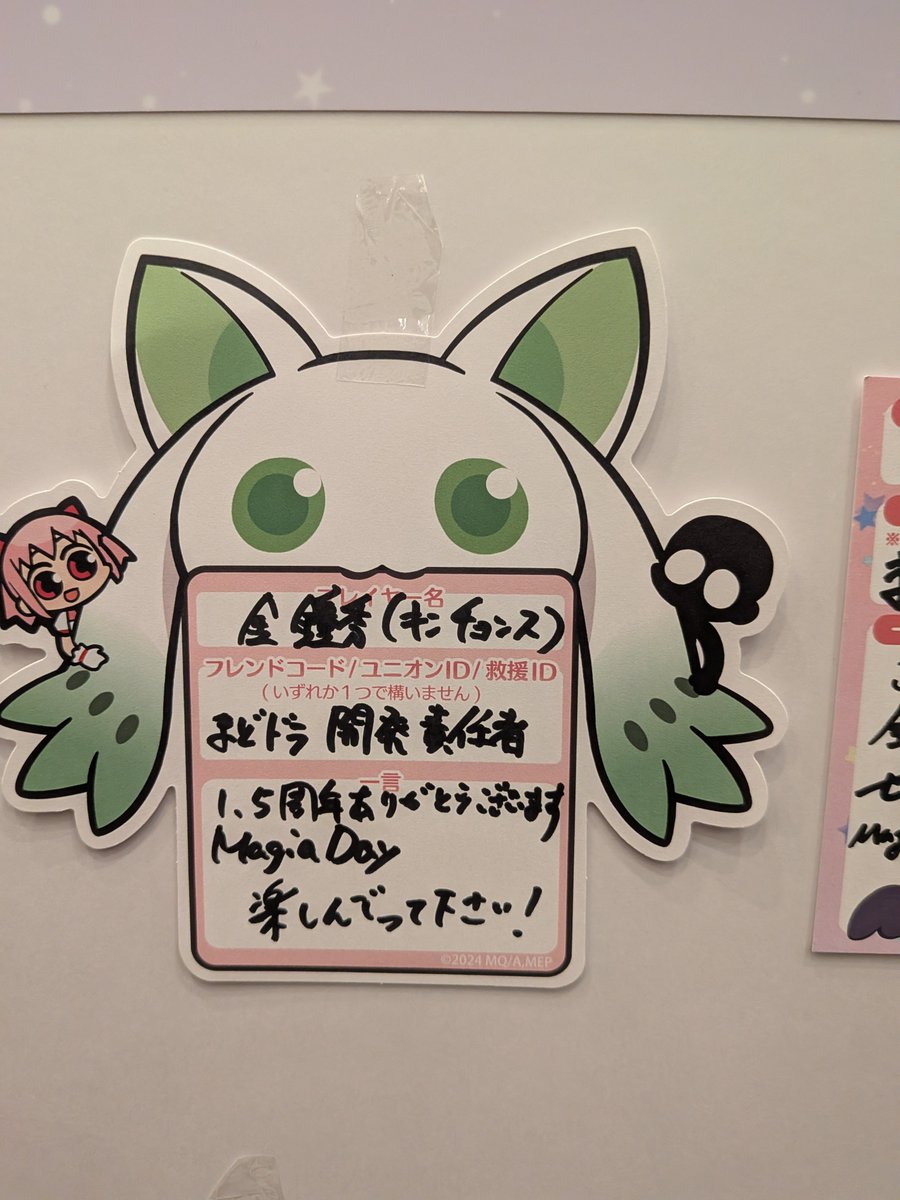 プレイヤー名
金 鐘秀(キン チョンス)
フレンドコード/ユニオンID/救援ID
(いずれか1つで構いません)
まどドラ 開発責任者
一言
1.5周年ありがとうございます
Magia Day
楽しんでって下さい!
©2024 MQ/A,MEP
※
Mag